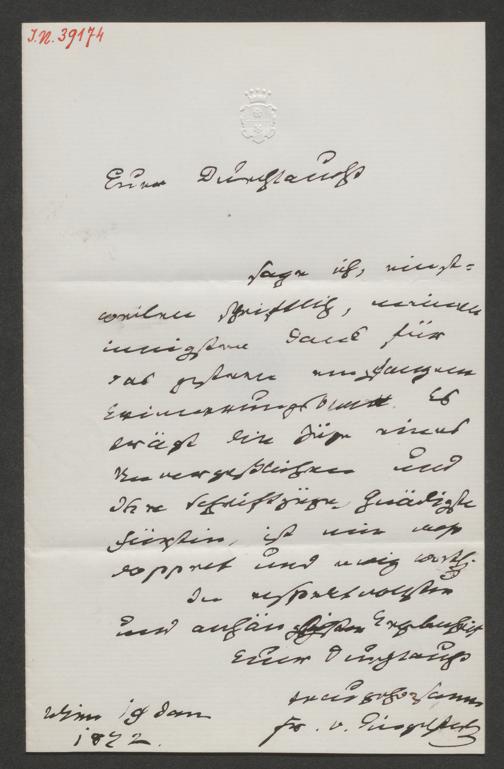 I.N. 39174
Euer Durchlaucht
sage ich, einst=
weilen schriftlich, meinen
innigsten Dank für
das gestern empfangene
Erinnerungsblatt. Es
trägt die Züge eines
Unvergeßlichen und
Ihre Schriftzüge, Gnädigste
Fürstin, ist mir also
doppelt und ewig werth.
In respektvollster
und anhänglichster Ergebenheit
Euer Durchlaucht
treugehorsamer
Fr. v. Dingelstedt
Wien 19 Jan
1872.